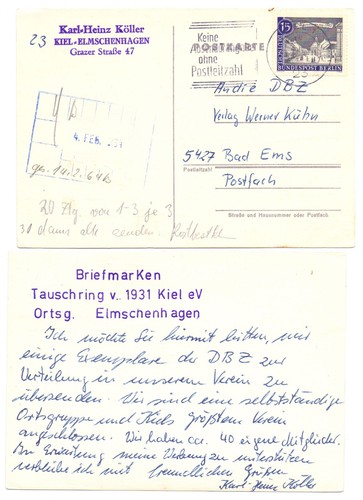 Karl-Heinz Köller
KIEL-ELMSCHENHAGEN
Grazer Straße 47
23
Keine
ohne
Postleitzahl
POSTKARTE
15
DEUTSCHE BUNDESPOST BERLIN
An die DBZ
Verlag Werner Kühn
5427 Bad Ems
Postleitzahl
Postfach
Straße und Hausnummer oder Postfach
4. FEB.
20 Ztg. von 1-3 je 3
30 dann alle senden.
Briefmarken
Tauschring v. 1931 Kiel eV
Ortsg. Elmschenhagen
Ich möchte Sie hiermit bitten, mir
einige Exemplare der DBZ zur
Verteilung in unserem Verein zu
übersenden. Wir sind eine selbstständige
Ortsgruppe und Kiels größtem Verein
angeschlossen. Wir haben ca. 40 eigene Mitglieder.
In Erwartung meine Werbung zu unterstützen
verbleibe ich mit freundlichen Grüßen
Karl-Heinz Köller